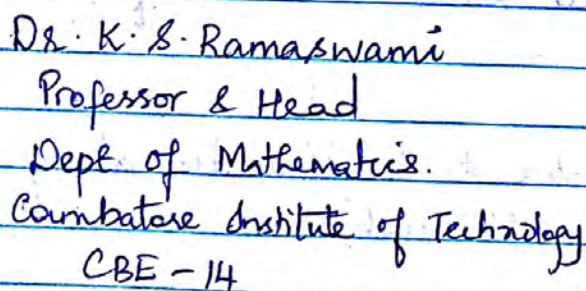 Dr. K. S. Ramaswami
Professor & Head
Dept. of Mathematics.
Coimbatore Institute of Technology
CBE - 14